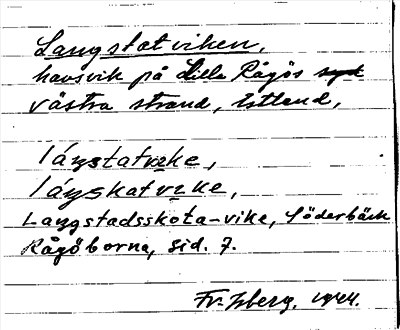 Langstatviken,
havsvik på Lilla Rågös
västra strand, Estland,
lángstatvike,
lángskatvike,
Langstadsskota-vike, Söderbäck
Rågöborna, sid. 7.
Fr. Isberg, 1944.